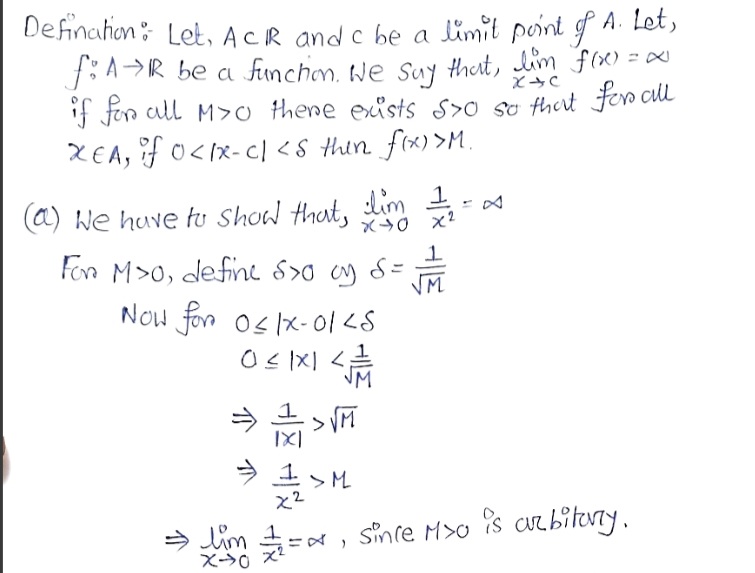 Defination: Let, A ⊂ ℝ and c be a limit point of A. Let,
f: A→ℝ be a function. We say that, lim_{x→c} f(x) = ∞
if for all M>0 there exists δ>0 so that for all
x∈A, if 0<|x-c|<δ then f(x)>M.
(a) We have to show that, lim_{x→0} 1/x² = ∞
For M>0, define δ>0 as δ = 1/√M
Now for 0≤|x-0|<δ
0≤|x|<1/√M
⇒ 1/|x| > √M
⇒ 1/x² > M
⇒ lim_{x→0} 1/x² = ∞, since M>0 is arbitary.